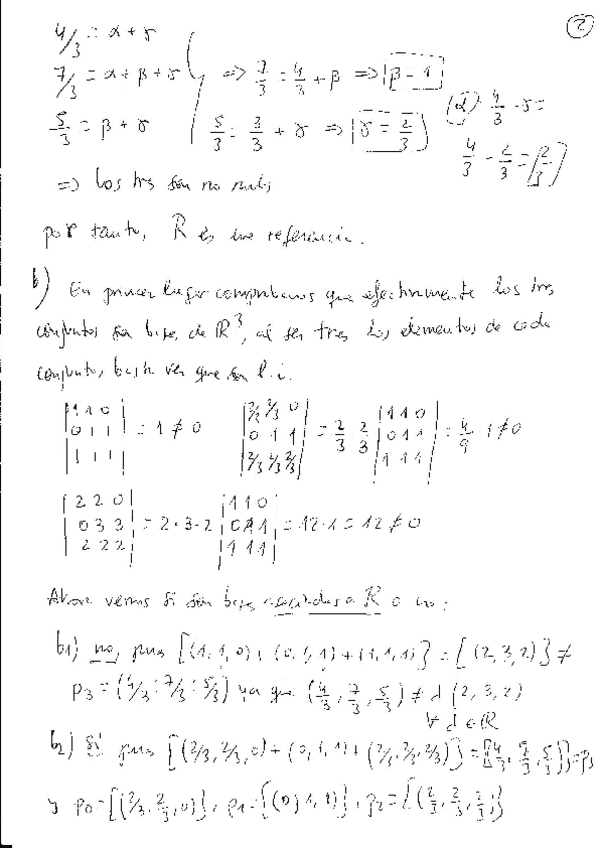 ②
4/3 = α + γ
7/3 = α + β + γ => 7/3 = 4/3 + β => β = 1
5/3 = β + γ 5/3 = 3/3 + γ => γ = 2/3 (α) 4/3 - γ =
4/3 - 2/3 = 2/3
=> Los tres son no nulos
por tanto, R es una referencia.
b) En primer lugar comprobamos que efectivamente los tres
conjuntos son base de R³, al ser tres los elementos de cada
conjunto, basta ver que son l.i.
|1 1 0| |2/3 2/3 0| |1 1 0|
|0 1 1| = 1 ≠ 0 |0 1 1| = 2/3 · 2/3 |0 1 1| = 4/9 · 1 ≠ 0
|1 1 1| |2/3 2/3 2/3| |1 1 1|
|2 2 0| |1 1 0|
|0 3 3| = 2·3·2 |0 1 1| = 12·1 = 12 ≠ 0
|2 2 2| |1 1 1|
Ahora vemos si son bases asociadas a R o no:
b1) no, pues [(1,1,0) + (0,1,1) + (1,1,1)} = [(2,3,2)} ≠
P3 = (4/3 : 7/3 : 5/3) ya que (4/3, 7/3, 5/3) ≠ λ (2,3,2)
∀ λ ∈ R
b2) Sí pues [(2/3, 2/3, 0) + (0,1,1) + (2/3, 2/3, 2/3)} = [(4/3, 7/3, 5/3)} = P3
y P0 = [(2/3, 2/3, 0)}, P1 = [(0,1,1)}, P2 = [(2/3, 2/3, 2/3)}